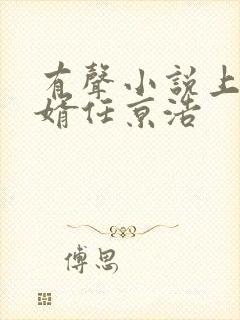 有聲小説上
婿任京浩
傅思